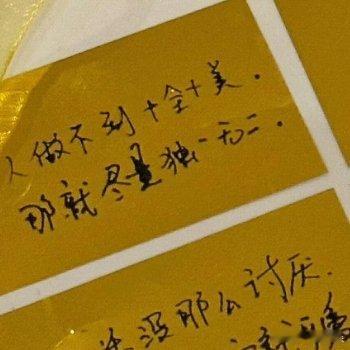 人做不到十全十美.
那就尽量独一无二.
没那么讨厌.